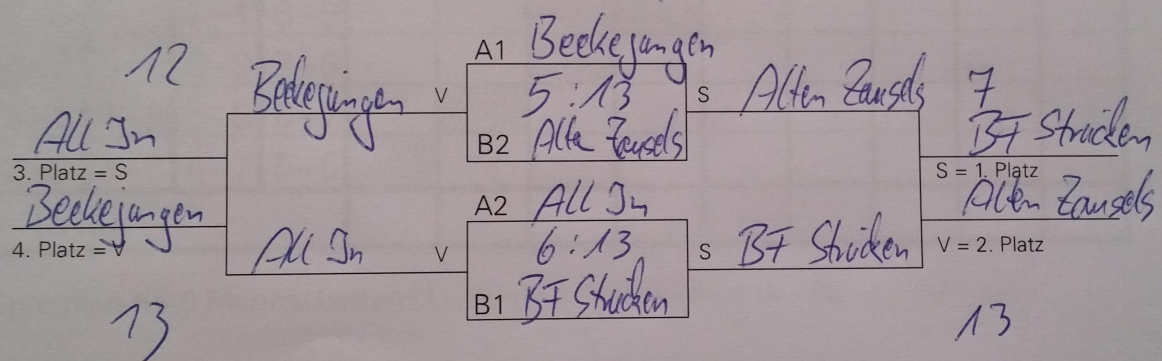 12
All In
3. Platz = S
Beekejungen
4. Platz = V
13
Beekejungen V
All In V
A1 Beekejungen
5:13
B2 Alte Zausels
A2 All In
6:13
B1 BF Strücken
S Alten Zausels
S BF Strücken
7
BF Strücken
S = 1. Platz
Alten Zausels
V = 2. Platz
13